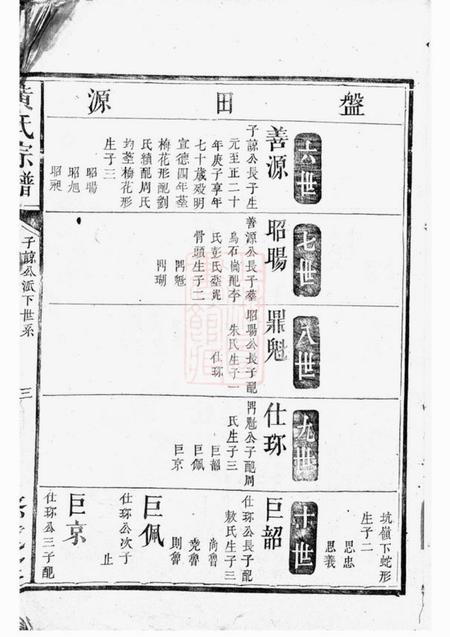 盤田源
六世
善源
子諒公長子生
元至正二十
年庚子享年
七十歲歿明
宣德四年葬
梅花形配劉
氏續配周氏
均葬梅花形
生子三
昭暘
昭旭
七世
昭暘
善源公長子葬
烏石崗配李
氏彭氏葬
骨頭生子二
鼎魁
鼎瑚
八世
鼎魁
昭暘公長子配
朱氏生子一
仕琢
九世
仕琢
鼎魁公子配周
氏生子三
巨韶
巨佩
巨京
坑嶺下蛇形
生子二
思忠
思義
十世
巨韶
仕琢公長子配
敖氏生子三
尚魯
堯魯
則魯
巨佩
仕琢公次子
止
巨京
仕琢公三子配
黃氏宗譜
子諒公派下世系
三